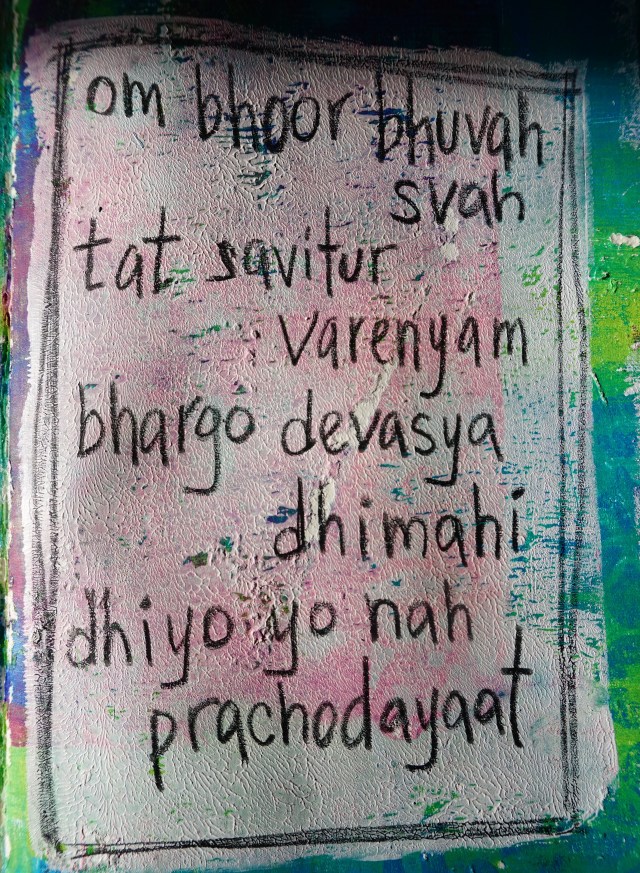 om bhoor bhuvah
svah
tat savitur
varenyam
bhargo devasya
dhimahi
dhiyo yo nah
prachodayaat